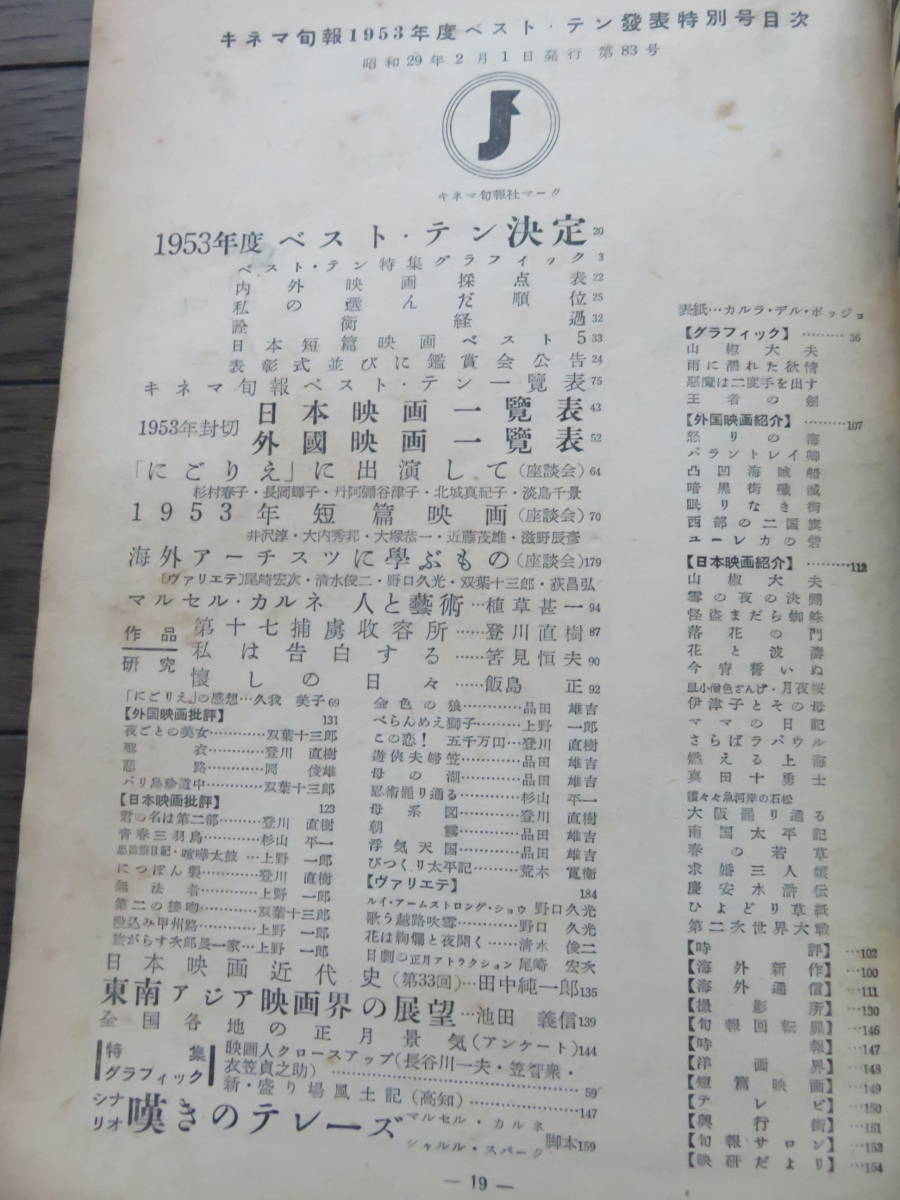 キネマ旬報1953年度ベスト・テン發表特別号目次
昭和29年2月1日発行 第83号
キネマ旬報社マーク
1953年度 ベスト・テン決定 20
ベスト・テン特集グラフィック 3
内外映画採点表 22
私の選んだ順位 25
詮衡経過 32
日本短篇映画ベスト5 33
表彰式並びに鑑賞会公告 24
キネマ旬報ベスト・テン一覽表 75
1953年封切
日本映画一覽表 43
外國映画一覽表 52
「にごりえ」に出演して(座談会) 64
杉村春子・長岡輝子・丹阿彌谷津子・北城真紀子・淡島千景
1953年短篇映画(座談会) 70
井沢淳・大内秀邦・大塚恭一・近藤茂雄・滋野辰彦
海外アーチスツに學ぶもの(座談会) 179
〔ヴァリエテ〕尾崎宏次・清水俊二・野口久光・双葉十三郎・荻昌弘
マルセル・カルネ 人と藝術…植草甚一 94
作品研究
第十七捕虜收容所……登川直樹 87
私は告白する……筈見恒夫 90
懷しの日々……飯島 正 92
「にごりえ」の感想…久我 美子 69
【外国映画批評】 131
夜ごとの美女…………双葉十三郎
聖 衣…………登川 直樹
悪 路…………岡 俊雄
バリ島珍道中…………双葉十三郎
【日本映画批評】 123
君の名は第二部………登川 直樹
青春三羽烏…………杉山 平一
・喧嘩太鼓…上野 一郎
にっぽん製…………登川 直樹
無法者…………上野 一郎
第二の接吻…………双葉十三郎
殴込み甲州路…………上野 一郎
旅がらす次郎長一家…上野 一郎
金色の狼…………品田 雄吉
べらんめえ獅子………上野 一郎
この恋！ 五千万円…登川 直樹
遊侠夫婦笠…………品田 雄吉
母の湖…………品田 雄吉
忍術罷り通る…………杉山 平一
母系図…………登川 直樹
朝霧…………品田 雄吉
浮気天国…………品田 雄吉
びっくり太平記………荒木 寛衞
【ヴァリエテ】 184
ルイ・アームストロング・ショウ 野口久光
歌う越路吹雪…………野口 久光
花は絢爛と夜開く……清水 俊二
日劇の正月アトラクション 尾崎 宏次
日本映画近代史(第33回)…田中純一郎 135
東南アジア映画界の展望…池田 義信 139
全国各地の正月景気(アンケート) 144
特集グラフィック
映画人クロースアップ(長谷川一夫・笠智衆・
衣笠貞之助)…………59
新・盛り場風土記(高知)…………147
シナリオ 嘆きのテレーズ
マルセル・カルネ
シャルル・スパーク
脚本 159
表紙…カルラ・デル・ポッジョ
【グラフィック】………36
山椒大夫
雨に濡れた欲情
悪魔は二度手を出す
王者の劍
【外国映画紹介】………107
怒りの海
バラントレイ卿
凸凹海賊船
暗黒街殲滅
眠りなき街
西部の二国旗
ユーレカの砦
【日本映画紹介】………112
山椒大夫
雪の夜の決闘
怪盗まだら蜘蛛
落花の門
花と波濤
今宵誓いぬ
皿小僧色ざんげ・月夜桜
伊津子とその母
ママの日記
さらばラバウル
燃える上海
真田十勇士
魚河岸の石松
大阪罷り通る
南国太平記
春の若草
求婚三人娘
慶安水滸伝
ひよどり草紙
第二次世界大戦
【時評】…102
【海外新作】…100
【海外通信】…111
【撮影所】…130
【旬報回転扉】…146
【時報】…147
【洋画界】…148
【短篇映画】…149
【テレビ】…150
【興行街】…151
【旬報サロン】…153
【映研だより】…154
— 19 —